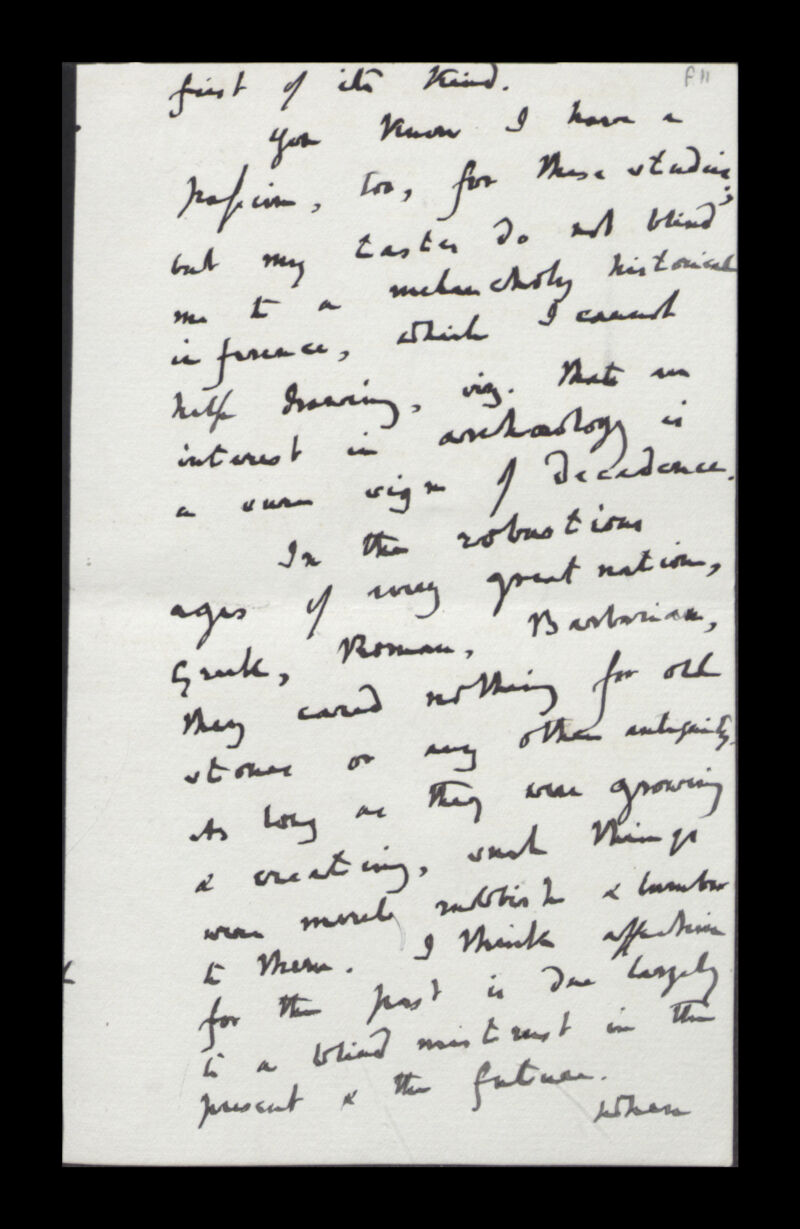 f.11
first of its kind.
You know I have a
passion, too, for these studies;
but my tastes do not blind
me to a melancholy historical
inference, which I cannot
help drawing, viz. that an
interest in archæology is
a sure sign of decadence.
In the robustious
ages of every great nation,
Greek, Roman, Barbarian,
they cared nothing for old
stones or any other antiquity.
As long as they were growing
& creating, such things
were merely rubbish & lumber
to them. I think affection
for the past is due largely
to a blind mistrust in the
present & the future.
When